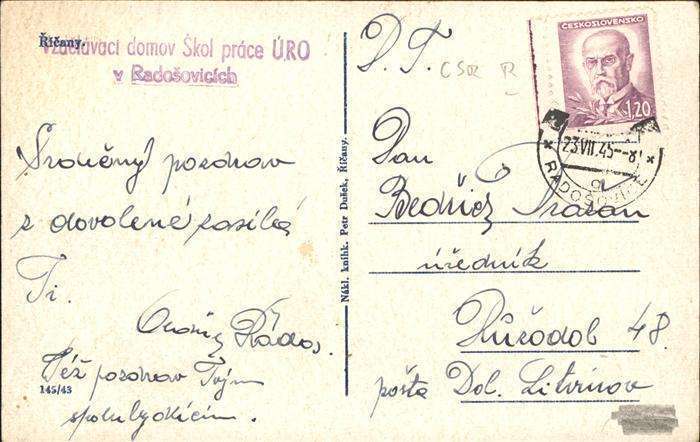 Říčany.
Vzdělávací domov Škol práce ÚRO
v Radošovicích
Srdečný pozdrav
z dovolené zasílá
Ti.
Rádos.
Též pozdrav Tvým
spolubydlícím.
145/43
Nákl. knihk. Petr Dušek, Říčany.
D. T.
ČSR R
ČESKOSLOVENSKO
1.20
23.VII.45--8
RADOŠOVICE
a
Pan
Bedřich
úředník
Růžodol 48.
pošta Dol. Litvínov